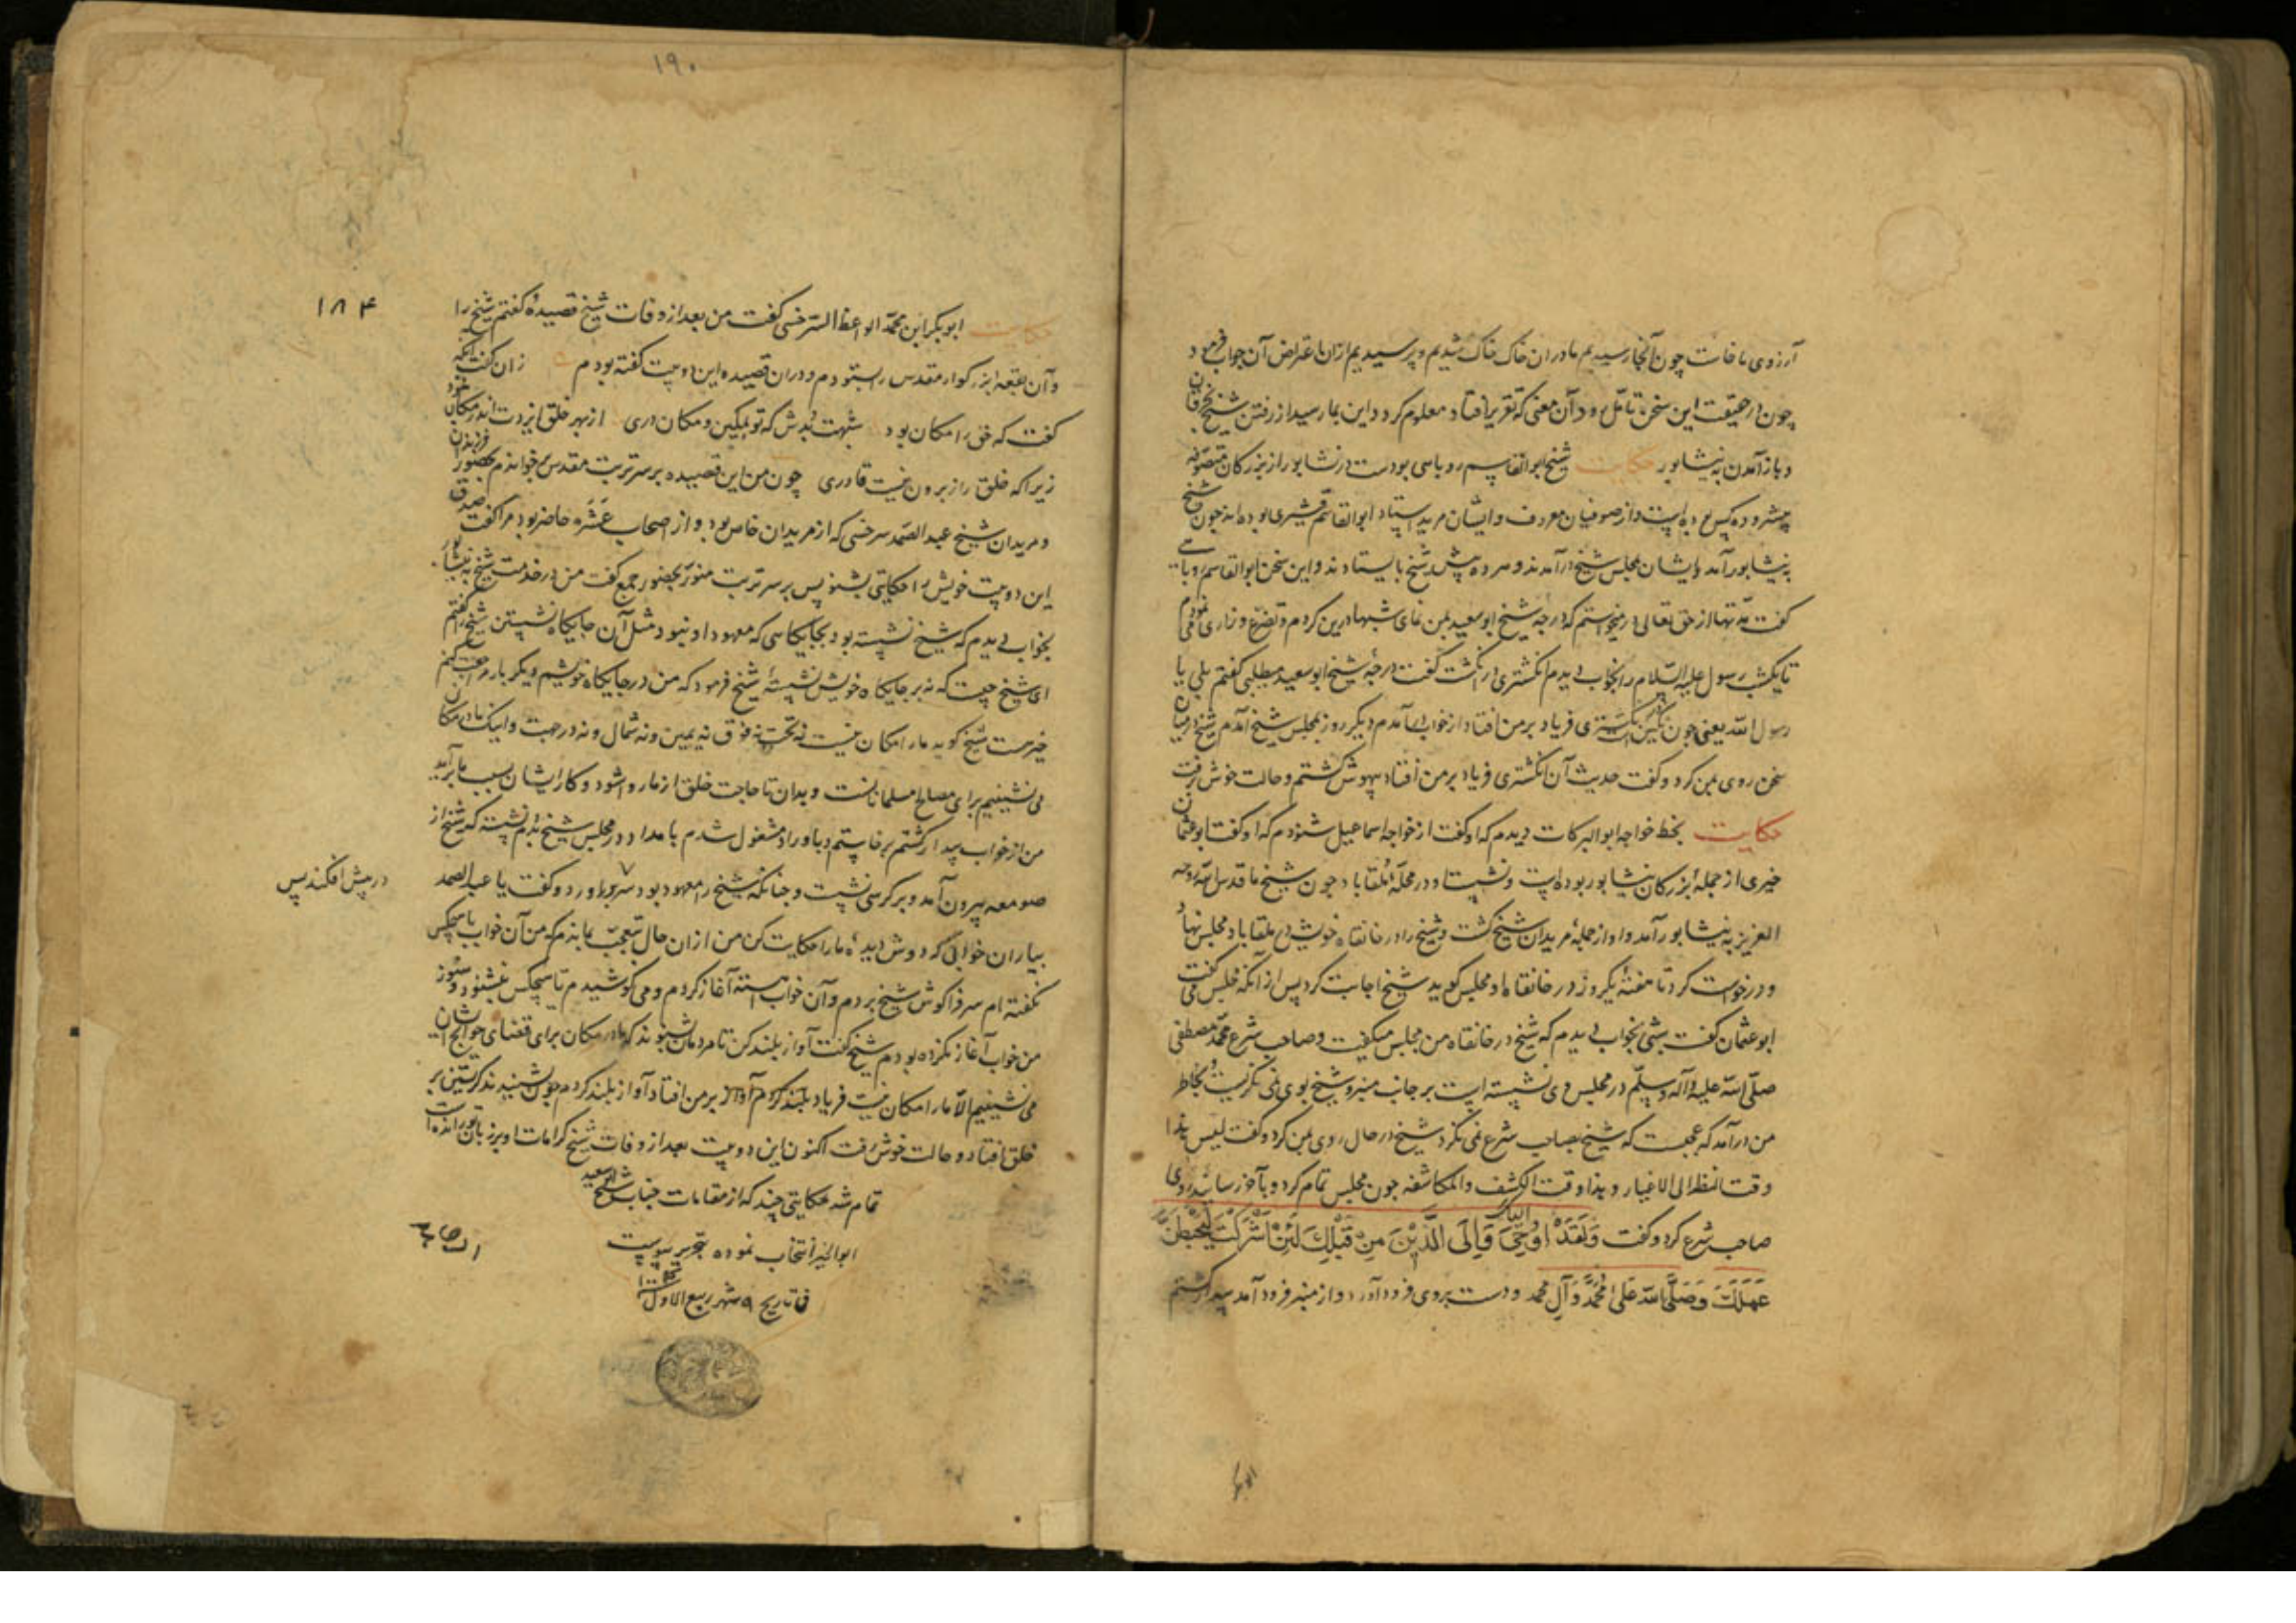 آرزوی ما فات چون آنجا رسیدیم ما دران خاک خاک شدیم و پرسیدیم ازان اعتراض آن جواب فرمود
چون از حقیقت این سخن تامل رود آن معنی که تقریر افتاد معلوم کردد و این بما رسید از رفتن شیخ بخرقان
و باز آمدن به نیشابور حکایت شیخ ابوالقاسم روباهی بودست در نشابور از بزرکان متصوفه
پیشرو ده کس بوده است و از صوفیان معروف و ایشان مرید استاد ابوالقاسم قشیری بوده اند چون شیخ
به نیشابور آمد و ایشان بمجلس شیخ درآمدند و هر ده پیش شیخ بایستادند و این سخن ابوالقاسم روباهی
کفت مدتها از حق تعالی درمیخواستم که درجه شیخ ابوسعید بمن نمای شبها درین کردم و تضرع و زاری نمودم
تا یکشب رسول علیه السلام را بخواب دیدم انکشتری در انکشت کفت درجه شیخ ابوسعید میطلبی کفتم بلی یا
رسول الله یعنی چون نکین انکشتری فریاد بر من افتاد از خواب درآمدم دیکر روز بمجلس شیخ آمدم شیخ در میان
سخن روی بمن کرد و کفت حدیث آن انکشتری فریاد بر من افتاد بیهوش کشتم و حالت خوش رفت
حکایت بخط خواجه ابوالبرکات دیدم که او کفت از خواجه اسماعیل شنودم که او کفت ابو عثمان
حیری از جمله بزرکان نیشابور بوده است و نشست او در محله ملقاباد چون شیخ ما قدس الله روحه
العزیز به نیشابور آمد و او از جمله مریدان شیخ کشت و شیخ را در خانقاه خویش در ملقاباد مجلس نهاد
و درخواست کرد تا هفته یکروز در خانقاه او مجلس کوید شیخ اجابت کرد پس از آنکه مجلس می کفت
ابو عثمان کفت شبی بخواب دیدم که شیخ در خانقاه من مجلس میکفت و صاحب شرع محمد مصطفی
صلی الله علیه و آله و سلم در مجلس وی نشسته است بر جانب منبر و شیخ بوی نمی نکریست بخاطر
من درآمد که عجبست که شیخ بصاحب شرع نمی نکرد شیخ در حال روی بمن کرد و کفت لیس هذا
وقت النظر الی الاغیار و هذا وقت الکشف و المکاشفه چون مجلس تمام کرد و بآخر رسانید روی
صاحب شرع کرد و کفت وَلَقَدْ اُوحِیَ اِلَیْکَ وَاِلَی الَّذِیْنَ مِنْ قَبْلِکَ لَئِنْ اَشْرَکْتَ لَیَحْبَطَنَّ
عَمَلُکَ وَصَلَّی الله عَلی مُحَمَّدٍ وَآلِ محمد و دست بروی فرود آورد و از منبر فرود آمد بیدار کشتم
۱۹۰
۱۸۴
حکایت ابوبکر ابن محمد الواعظ السرخسی کفت من بعد از وفات شیخ قصیده کفتم شیخ را
و آن بقعه بزرکوار مقدس را بستودم و دران قصیده این دو بیت کفته بودم زان کفت آنکه
کفت که حق را مکان بود شبهت بدش که تو بمکین و مکان دری از بهر خلق ایزدت اندر مکان نمود
زیرا که خلق را ز برون نیست قادری چون من این قصیده بر سر تربت مقدس می خواندم بحضور فرزندان
و مریدان شیخ عبد الصمد سرخسی که از مریدان خاص بود و از اصحاب عشره حاضر بود مرا کفت صدق
این دو بیت خویش را حکایتی بشنو پس بر سر تربت منور بحضور جمع کفت من در خدمت شیخ به نیشابور
بخواب دیدم که شیخ نشسته بود بجایکاهی که معهود او نبود مثل آن جایکاه نشستن شیخ را کفتم
ای شیخ چیست که نه بر جایکاه خویش نشسته شیخ فرمود که من در جایکاه خویشم دیکر بار مراجعت کردم
شیخ کوید ما را مکان نیست نه تحت نه فوق نه یمین و نه شمال و نه در جهت و اینک ما در مکان
می نشینیم برای مصالح مسلمانانست و بدان تا حاجت خلق از ما روا شود و کار ایشان بسبب ما برآید
من از خواب بیدار کشتم برخاستم و باوراد مشغول شدم بامداد در مجلس شیخ بودم نشسته که شیخ از
صومعه بیرون آمد و بر کرسی نشست و چنانکه شیخ را معهود بود سر برآورد و کفت یا عبد الصمد
در پیش افکند پس
بیا و آن خواب که دوش دیده ما را حکایت کن من ازان حال متعجب بماندم که من آن خواب با هیچکس
نکفته ام سر فرا کوش شیخ بردم و آن خواب آهسته آغاز کردم و می کوشیدم تا هیچکس نشنود و هنوز
من خواب آغاز نکرده بودم شیخ کفت آواز بلند کن تا مردمان بشنوند که ما در مکان برای قضای حوائج ایشان
می نشینیم الا ما را مکان نیست فریاد بر من افتاد آواز بلند کردم چون بشنیدند کریستن بر
خلق افتاد و حالت خوش رفت اکنون این دو بیت بعد از وفات شیخ کرامات او بر زبان تو رانده است
تمام شد حکایتی چند که از مقامات جناب شیخ ابوسعید
ابوالخیر انتخاب نموده بتحریر پیوست
فی تاریخ ۹ شهر ربیع الاول